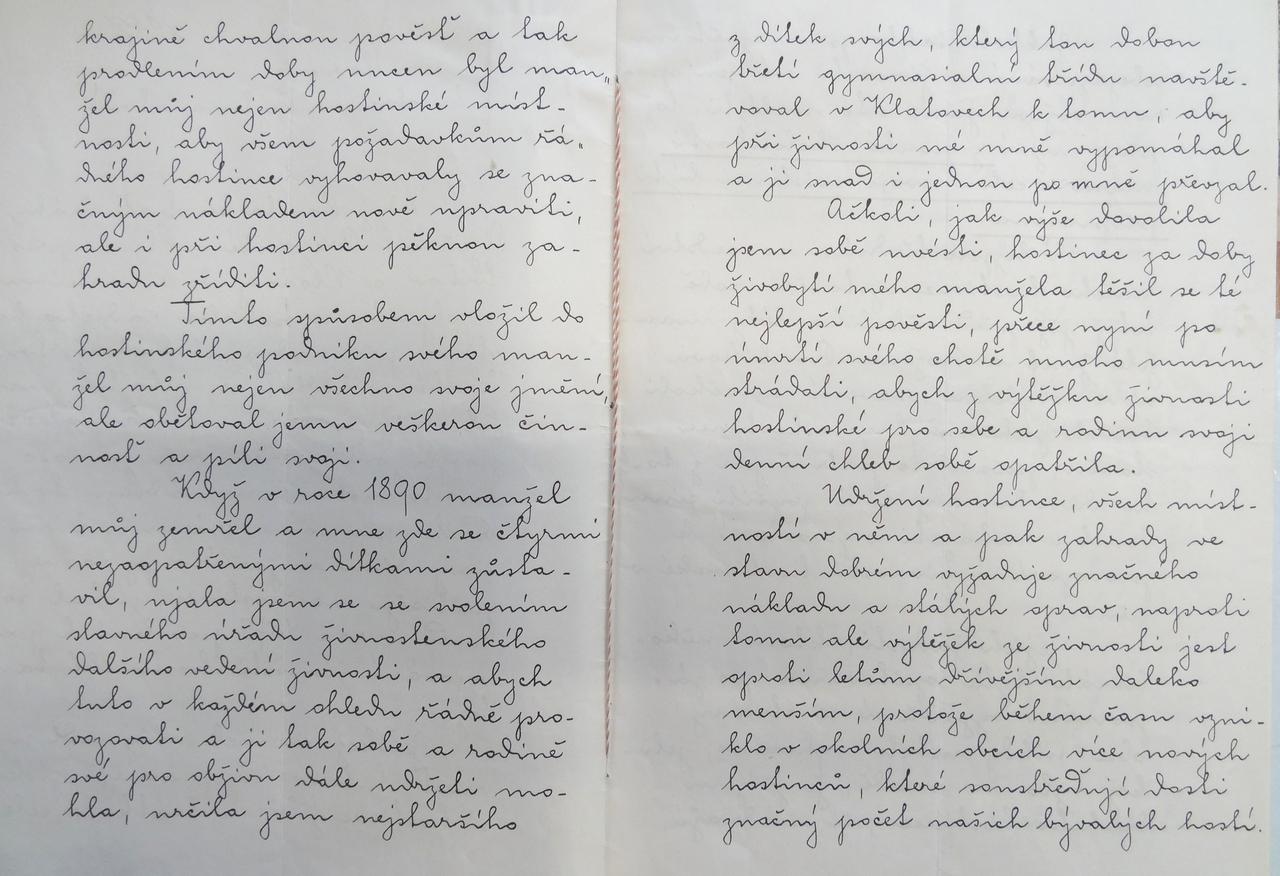 krajině chvalnou pověsť a tak
prodlením doby nucen byl man„
žel můj nejen hostinské míst-
nosti, aby všem požadavkům řá„
dného hostince vyhovavaly se zna-
čným nákladem nově upraviti,
ale i při hostinci pěknou za-
hradu zříditi.
Tímto spůsobem vložil do
hostinského podniku svého man-
žel můj nejen všechno svoje jmění,
ale obětoval jemu veškerou čin-
nosť a píli svoji.
Když v roce 1890 manžel
můj zemřel a mne zde se čtyrmi
nezaopatřenými dítkami zůsta-
vil, ujala jsem se se svolením
slavného úřadu živnostenského
dalšího vedení živnosti, a abych
tuto v každém ohledu řádně pro-
vozovati a ji tak sobě a rodině
své pro obživu dále udržeti mo-
hla, určila jsem nejstaršího
z dítek svých, který tou dobou
třetí gymnasialní třídu navště-
voval v Klatovech k tomu, aby
při živnosti mé mně vypomáhal
a ji snad i jednou po mně převzal.
Ačkoli, jak výše dovolila
jsem sobě uvésti, hostinec za doby
živobytí mého manžela těšil se té
nejlepší pověsti, přece nyní po
úmrtí svého chotě mnoho musím
strádati, abych z výtěžku živnosti
hostinské pro sebe a rodinu svoji
denní chleb sobě opatřila.
Udržení hostince, všech míst-
ností v něm a pak zahrady ve
stavu dobrém vyžaduje značného
nákladu a stálých oprav, naproti
tomu ale výtěžek ze živnosti jest
oproti letům dřívějším daleko
menším, protože během času vzni-
klo v okolních obcích více nových
hostinců, které soustřeďují dosti
značný počet našich bývalých hostí.